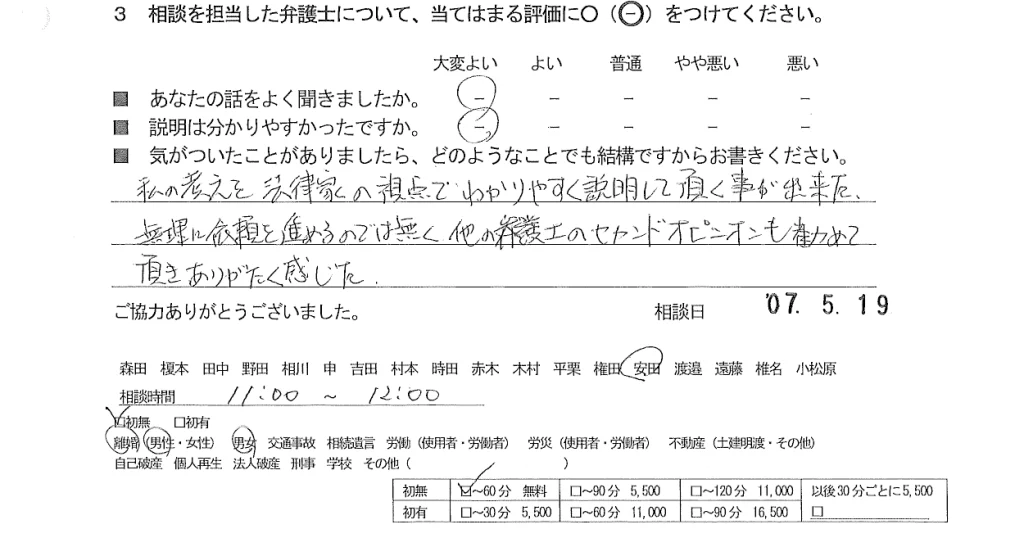 3 相談を担当した弁護士について、当てはまる評価に○（⊖）をつけてください。
大変よい よい 普通 やや悪い 悪い
■ あなたの話をよく聞きましたか。 − − − − −
■ 説明は分かりやすかったですか。 − − − − −
■ 気がついたことがありましたら、どのようなことでも結構ですからお書きください。
私の考えを法律家の視点でわかりやすく説明して頂く事が出来た、
無理に依頼を進めるのでは無く他の弁護士のセカンドオピニオンも勧めて
頂きありがたく感じた.
ご協力ありがとうございました。 相談日 '07. 5. 19
森田 榎本 田中 野田 相川 申 吉田 村本 時田 赤木 木村 平栗 権田 安田 渡邉 遠藤 椎名 小松原
相談時間 11:00 ~ 12:00
☑初無 □初有
離婚（男性・女性） 男女 交通事故 相続遺言 労働（使用者・労働者） 労災（使用者・労働者） 不動産（土建明渡・その他）
自己破産 個人再生 法人破産 刑事 学校 その他（ ）
初無 ☑～60分 無料 □～90分 5,500 □～120分 11,000 以後30分ごとに5,500
初有 □～30分 5,500 □～60分 11,000 □～90分 16,500 □